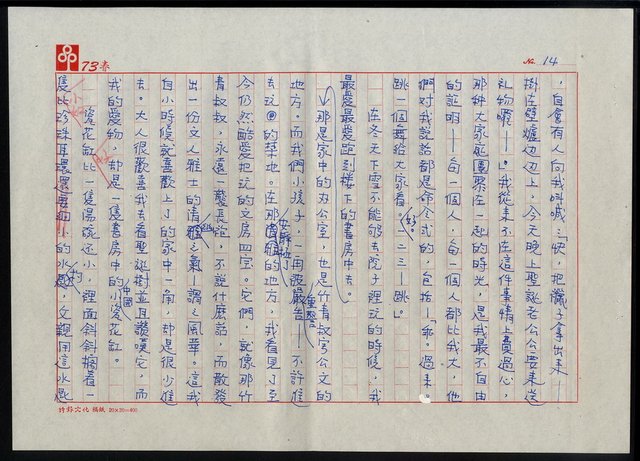 73春
No. 14
，自會有人向我叫喊：「快，把襪子拿出來—
掛在壁爐邊邊上，今天晚上聖誕老公公要來送
禮物囉——」。我從來不在這件事情上憂過心，
那種大家庭團聚在一起的時光，是我最不自由
的証明——每一個人，每一個人都比我大，他
們對我說話都是命令式的，包括—「乖。過來。
跳一個舞給大家看。好。一二三—跳。」
在冬天下雪不能夠去院子裡玩的時候，我
最愛最愛跑到樓下的書房中去。
那是家中的辦公室，也是竹青叔字公文的
地方。而我們小孩子，一再被嚴重警告——不許進
去玩的禁地。在那安靜極了的地方，我看見了至
今仍然酷愛把玩的文房四寶。它們，就像那竹
青叔叔，永遠一襲長袍，不說什麼話，而散發
出一份文人雅士的清雅之氣—謂之風華。這我
自小時候就喜歡上了的家中一角，却是很少進
去。大人很歡喜我去看聖誕樹並且讚嘆它，而
我的愛物，却是一隻書房中的中國小瓷花缸。
瓷花缸比一隻湯碗還小，裡面斜斜擱着一
隻比珍珠耳環還要細小的水杓，文觀用這水匙
特彩文化 稿紙 20×20=400